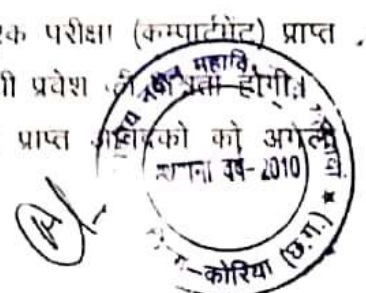 परीक्षा (कम्पार्टमेंट) प्राप्त
प्रवेश की पात्रता होगी।
प्राप्त आवेदको को अगली
नवीन महावि.
वर्ष-2010
कोरिया (छ.ग.) *